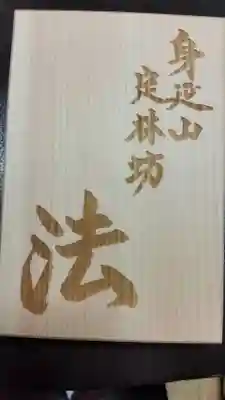 身延山
定林坊
法